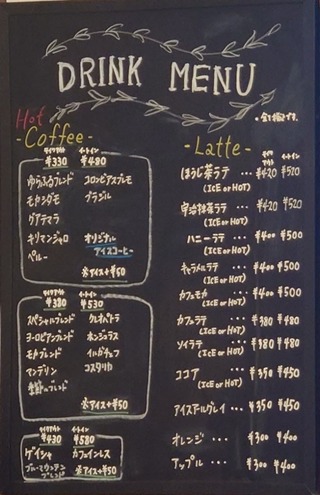 DRINK MENU
Hot
-Coffee-
テイクアウト イートイン
¥330 ¥480
ゆらふるブレンド コロンビアスプレモ
モカシダモ ブラジル
グアテマラ
キリマンジャロ オリジナル
ペルー アイスコーヒー
※アイス+¥50
テイクアウト イートイン
¥380 ¥530
スペシャルブレンド クレオパトラ
ヨーロピアンブレンド ホンジュラス
モカブレンド イルガチェフ
マンデリン コスタリカ
ブレンド
※アイス+¥50
テイクアウト イートイン
¥430 ¥580
ゲイシャ カフェインレス
ブルーマウンテン
ブレンド ※アイス+¥50
-Latte-
テイクアウト イートイン
ほうじ茶ラテ ・・・ ¥420 ¥520
(ICE or HOT)
宇治抹茶ラテ ・・・ ¥420 ¥520
(ICE or HOT)
ハニーラテ ・・・ ¥400 ¥500
(ICE or HOT)
キャラメルラテ ・・・ ¥400 ¥500
(ICE or HOT)
カフェモカ ・・・ ¥400 ¥500
(ICE or HOT)
カフェラテ ・・・ ¥380 ¥480
(ICE or HOT)
ソイラテ ・・・ ¥380 ¥480
(ICE or HOT)
ココア ・・・ ¥350 ¥450
(ICE or HOT)
アイスアールグレイ ・・・ ¥350 ¥450
オレンジ ・・・ ¥300 ¥400
アップル ・・・ ¥300 ¥400